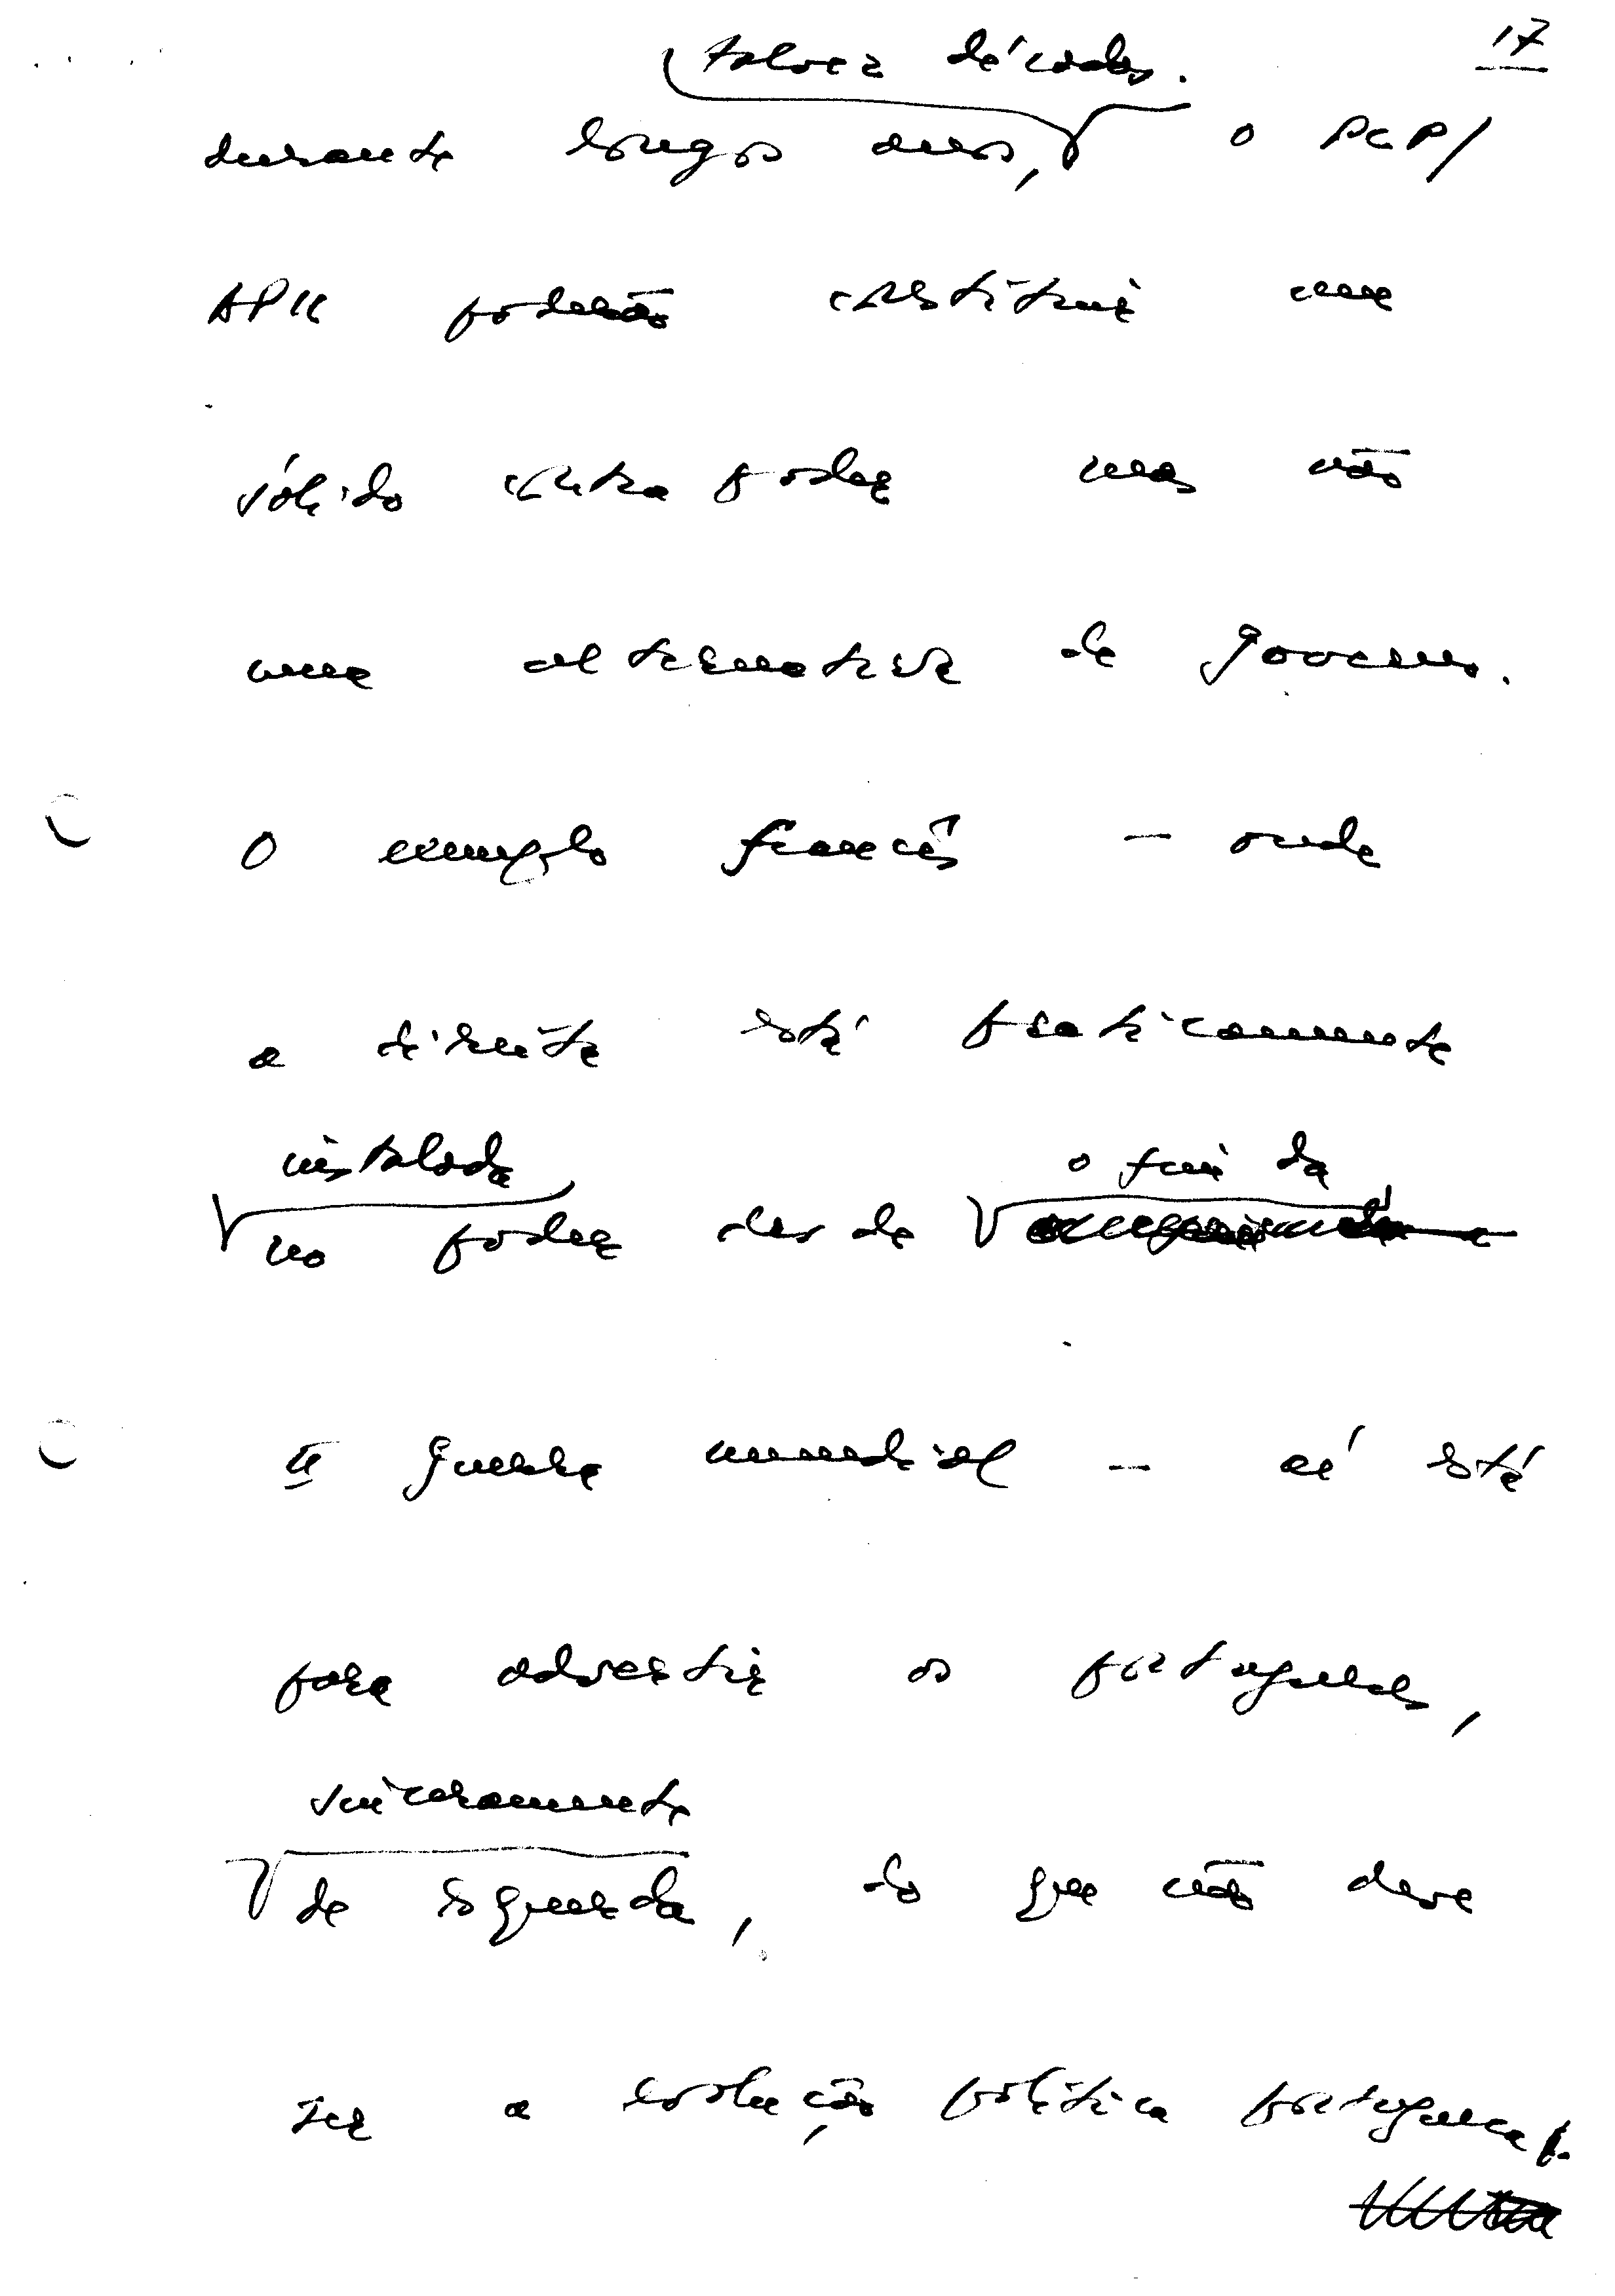 17
talvez décadas.
durante longos anos, o PCP/
APU poderão constituir um
sólido contra poder mas não
uma alternativa de governo.
O exemplo francês – onde
a direita está praticamente
instalada o fim da
no poder desde
II guerra mundial – aí está
para advertir os portugueses,
sinceramente
de esquerda, do que não deve
ser a evolução política portuguesa.